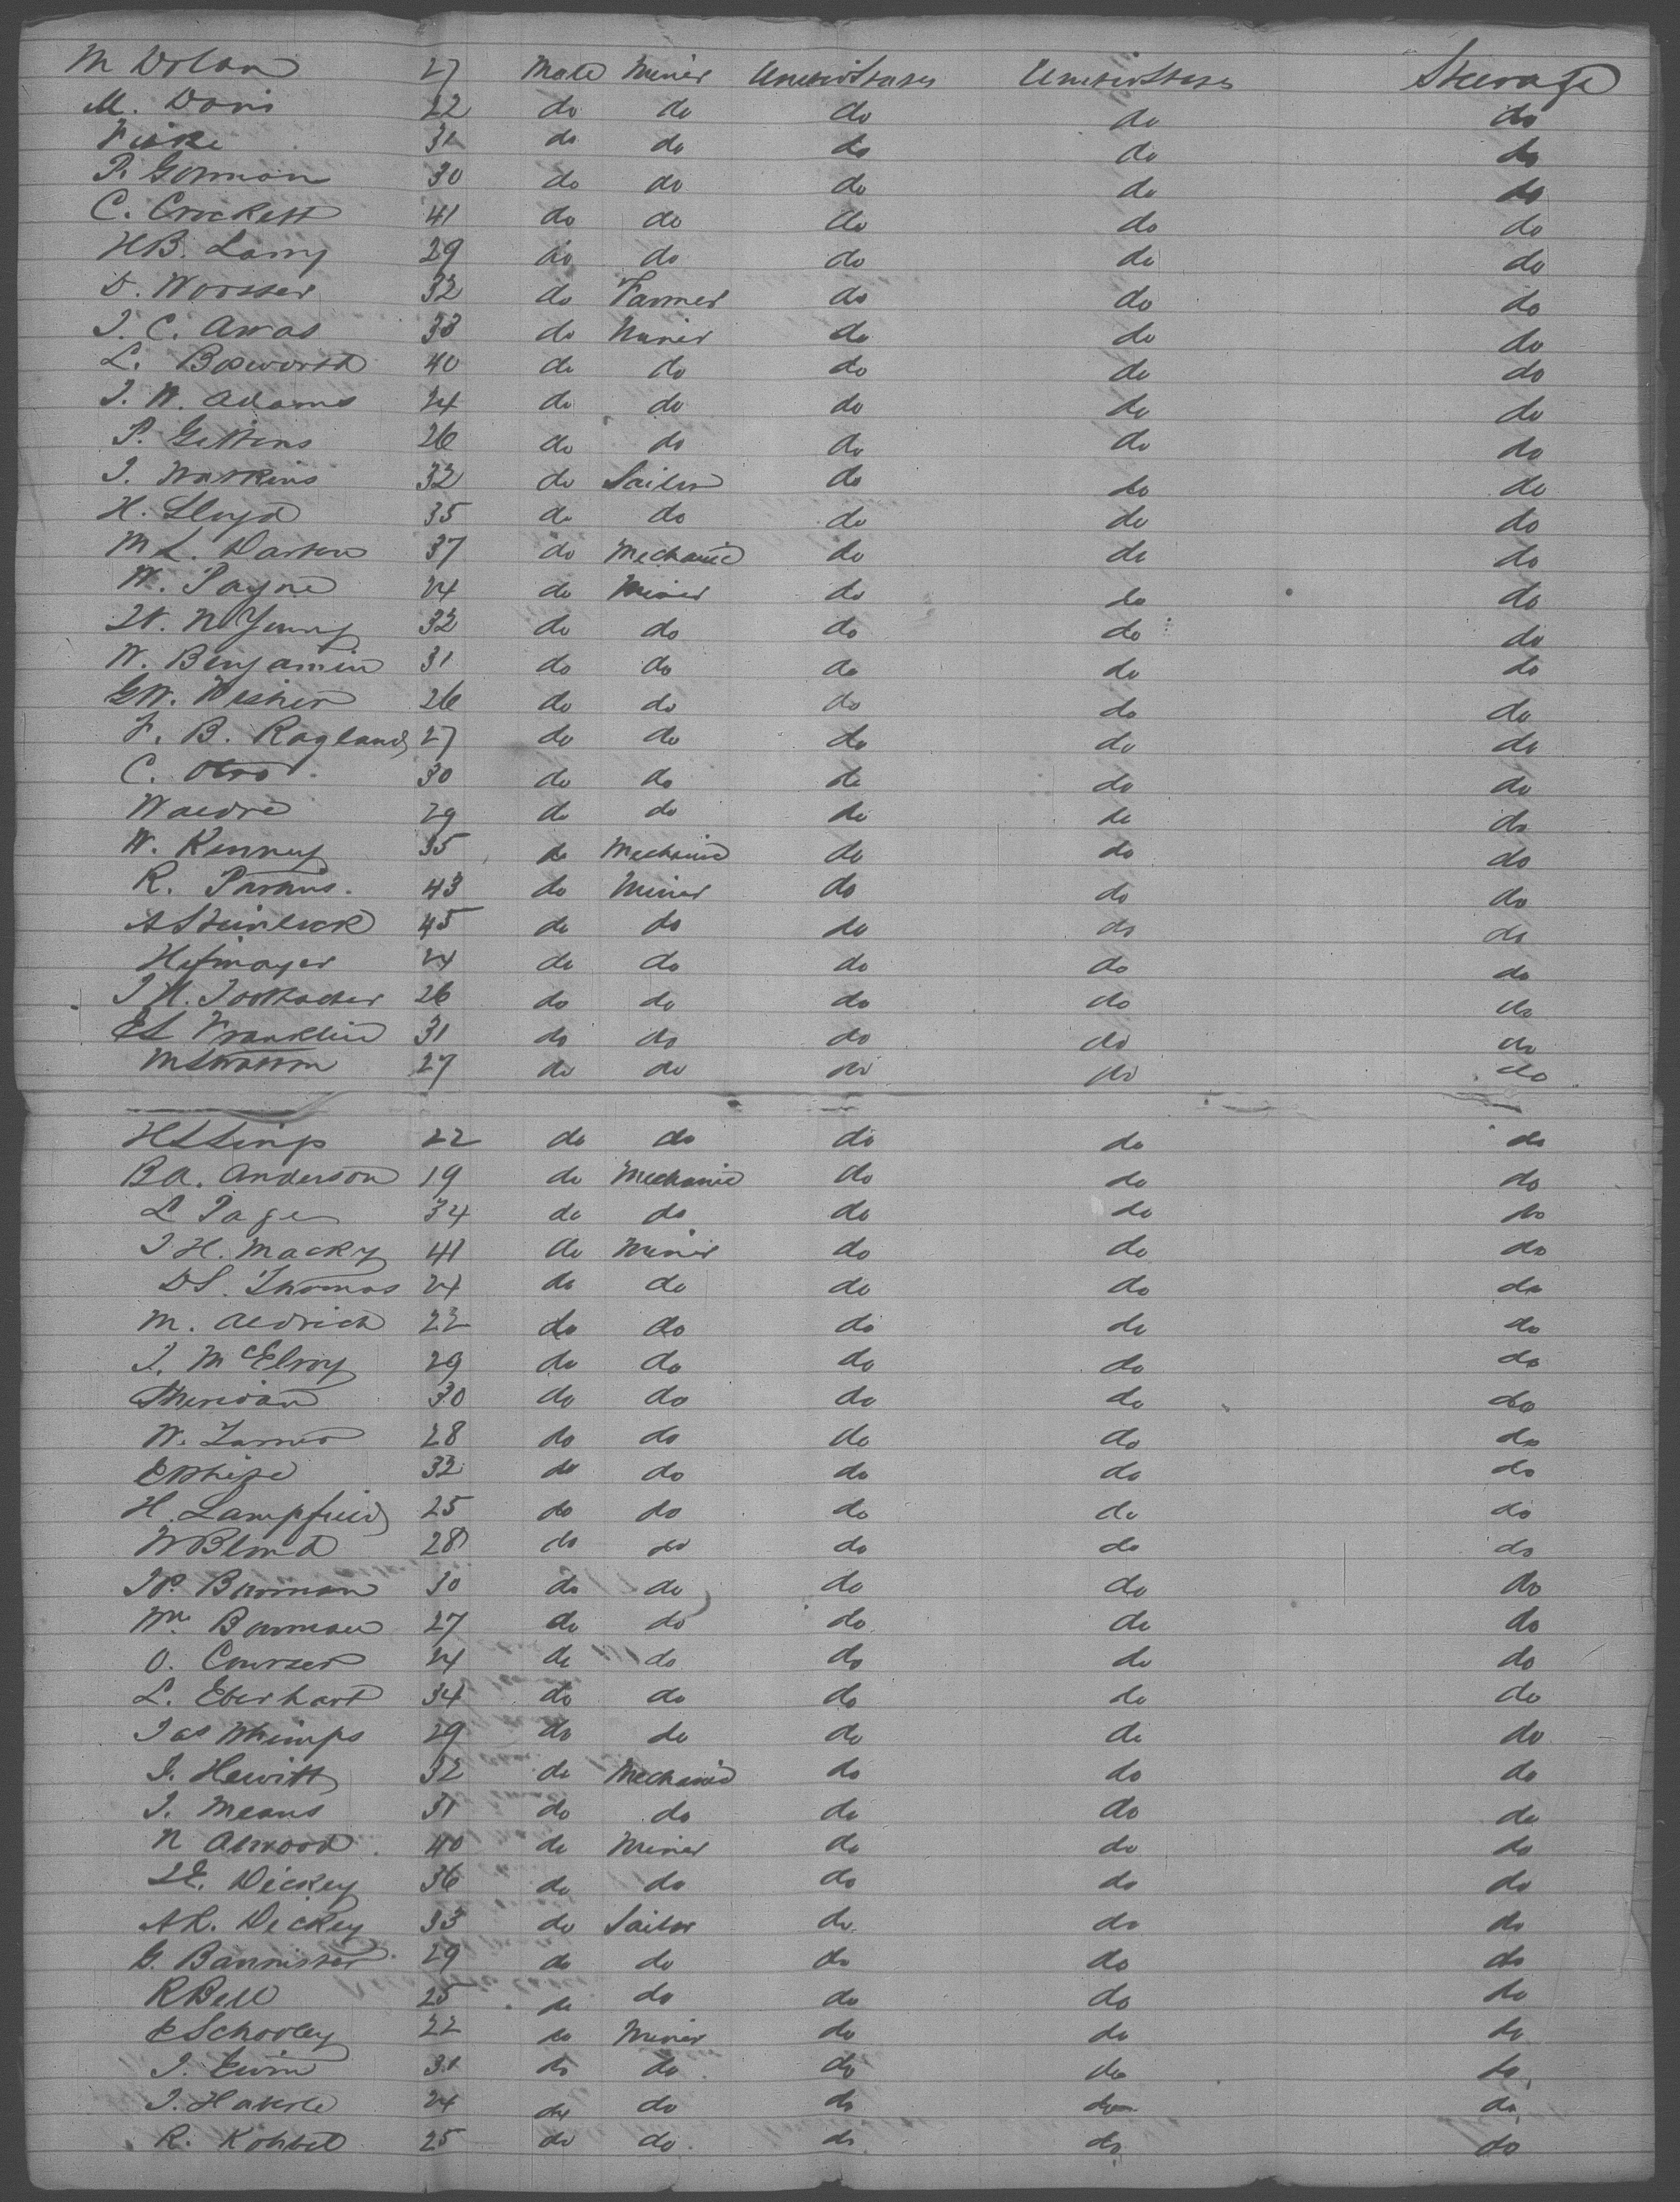 M Dolan 27 Male Miner United States United States Steerage
M. Davis 22 do do do do do
Fiske 31 do do do do do
P. Gorman 30 do do do do do
C. Crockett 41 do do do do do
H B. Lamy 29 do do do do do
D. Worster 32 do Farmer do do do
J. C. 33 do Miner do do do
L. Bosworth 40 do do do do do
J. W. Adams 24 do do do do do
P. Gittins 26 do do do do do
J. Watkins 32 do Sailor do do do
H. Lloyd 35 do do do do do
M L. 37 do Mechanic do do do
W. Payne 24 do Miner do do do
W. N Young 32 do do do do do
W. Benjamin 31 do do do do do
G W. 26 do do do do do
F. B. Ragland 27 do do do do do
C. Otto 30 do do do do do
Waldre 29 do do do do do
W. Kenney 35 do Mechanic do do do
R. 43 do Miner do do do
A Steinbeck 45 do do do do do
Hefmayer 24 do do do do do
J H. 26 do do do do do
E L Franklin 31 do do do do do
M 27 do do do do do
H 22 do do do do do
B A. Anderson 19 do Mechanic do do do
L Page 34 do do do do do
J H. Macky 41 do Miner do do do
D S. Thomas 24 do do do do do
M. Aldrich 22 do do do do do
J. McElroy 29 do do do do do
Sheridan 30 do do do do do
W. James 28 do do do do do
E White 32 do do do do do
H. Lampfield 25 do do do do do
W Blond 28 do do do do do
J P. Bowman 30 do do do do do
Wm Bowman 27 do do do do do
O. Courser 24 do do do do do
L. Eberhart 34 do do do do do
Jas Whimps 29 do do do do do
J. Hewitt 32 do Mechanic do do do
J. Means 31 do do do do do
N Atwood 40 do Miner do do do
Dickey 36 do do do do do
A L. Dickey 33 do Sailor do do do
G. Bannister 29 do do do do do
R Bell 25 do do do do do
E Schooley 22 do Miner do do do
J. Ewin 31 do do do do do
J. 24 do do do do do
R. 25 do do do do do